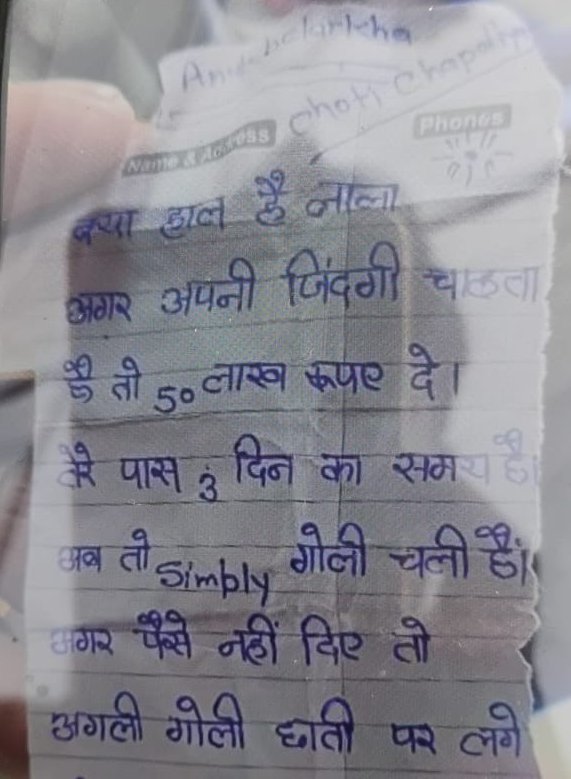 Name & Address
Phones
क्या हाल है लाला
अगर अपनी जिंदगी चाहता
है तो 50 लाख रूपए दे।
तेरे पास 3 दिन का समय है।
अब तो Simply गोली चली हैं।
अगर पैसे नहीं दिए तो
अगली गोली छाती पर लगे